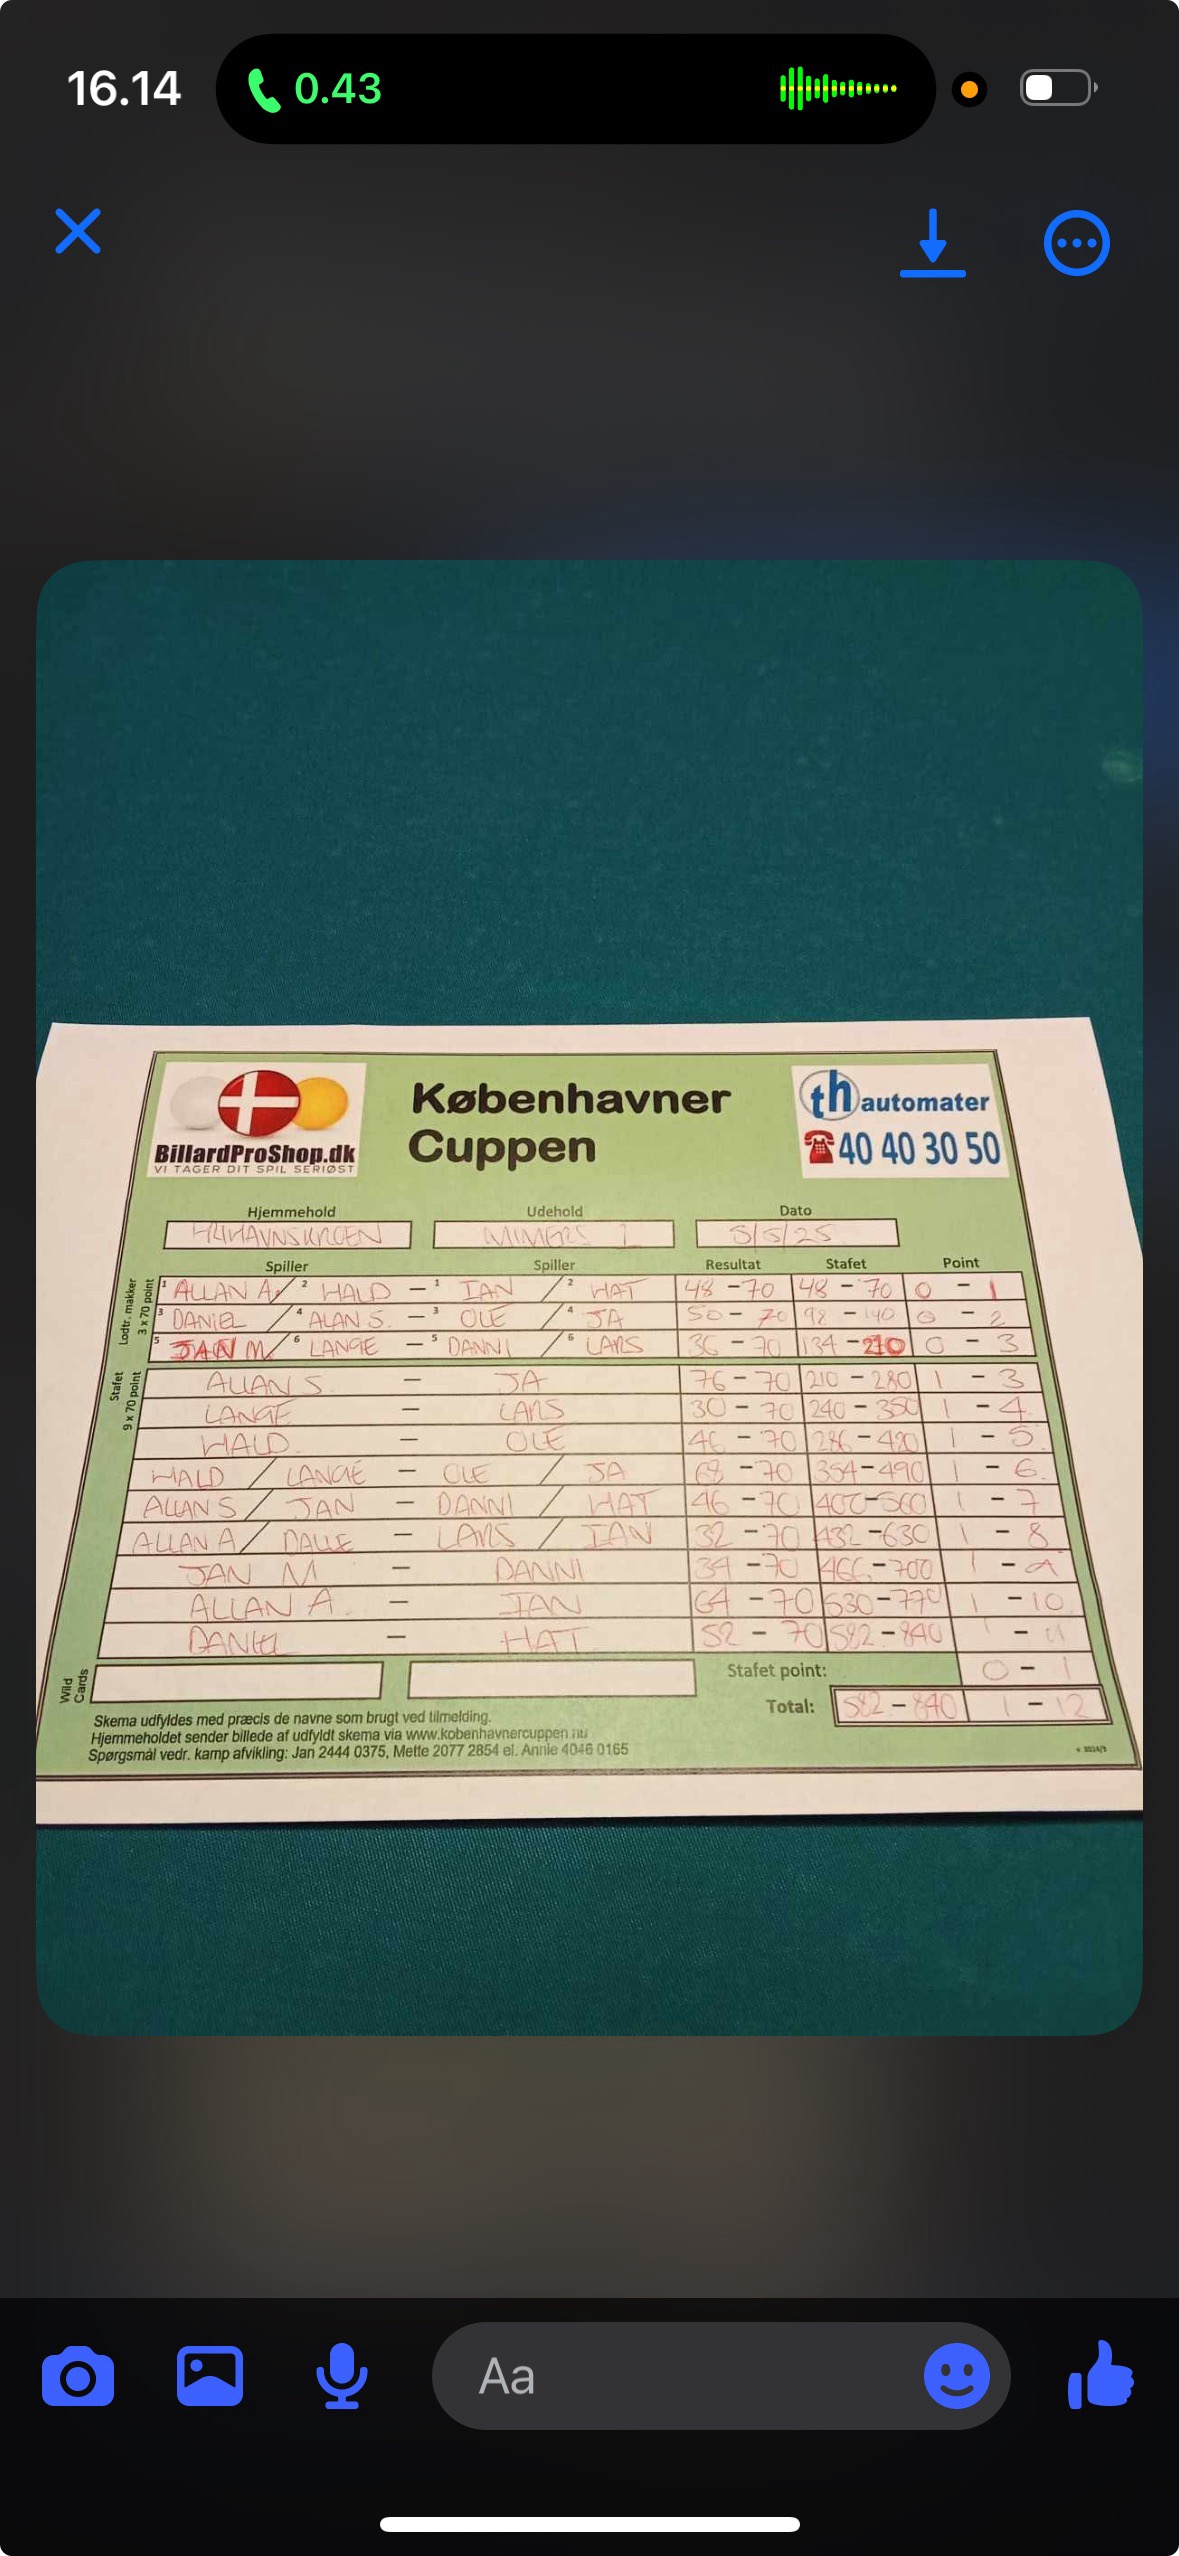 16.14 0.43
BillardProShop.dk
VI TAGER DIT SPIL SERIØST
Københavner
Cuppen
th automater
40 40 30 50
Hjemmehold Udehold Dato
MIMERS 1 5/5/25
Spiller Spiller Resultat Stafet Point
Lodtr. makker
3 x 70 point
1 ALLAN A / 2 HALD - 1 IAN / 2 HAT 48 - 70 48 - 70 0 - 1
3 DANIEL / 4 ALAN S. - 3 OLE / 4 JA 50 - 70 98 - 140 0 - 2
5 JAN M / 6 LANGE - 5 DANNI / 6 LARS 36 - 70 134 - 210 0 - 3
Stafet
9 x 70 point
ALLAN S - JA 76 - 70 210 - 280 1 - 3
LANGE - LARS 30 - 70 240 - 350 1 - 4
HALD - OLE 46 - 70 286 - 420 1 - 5
HALD / LANGE - OLE / JA 68 - 70 354 - 490 1 - 6
ALLAN S / JAN - DANNI / HAT 46 - 70 400 - 560 1 - 7
ALLAN A / DALLE - LARS / IAN 32 - 70 432 - 630 1 - 8
JAN M - DANNI 34 - 70 466 - 700 1 - 9
ALLAN A. - IAN 64 - 70 530 - 770 1 - 10
DANIEL - HAT 52 - 70 582 - 840 1 - 11
Wild
Cards
Stafet point: 0 - 1
Total: 582 - 840 1 - 12
Skema udfyldes med præcis de navne som brugt ved tilmelding.
Hjemmeholdet sender billede af udfyldt skema via www.kobenhavnercuppen.nu
Spørgsmål vedr. kamp afvikling: Jan 2444 0375, Mette 2077 2854 el. Annie 4046 0165
Aa